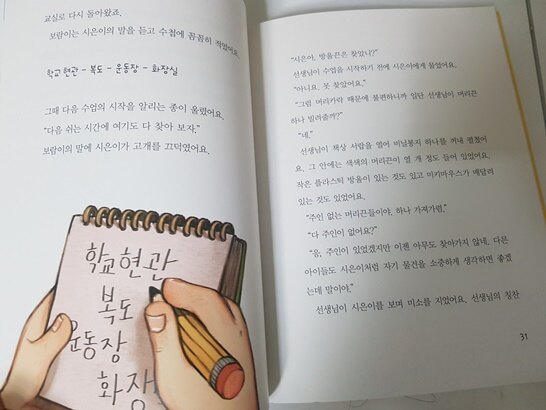 교실로 다시 돌아왔죠.
보람이는 시은이의 말을 듣고 수첩에 꼼꼼히 적었어요.
학교 현관 – 복도 – 운동장 – 화장실
그때 다음 수업의 시작을 알리는 종이 울렸어요.
“다음 쉬는 시간에 여기도 다 찾아 보자.”
보람이의 말에 시은이가 고개를 끄덕였어요.
학교 현관
복도
운동장
화장
“시은아, 방울끈은 찾았니?”
선생님이 수업을 시작하기 전에 시은이에게 물었어요.
“아니요. 못 찾았어요.”
“그럼 머리카락 때문에 불편하니까 일단 선생님이 머리끈
하나 빌려줄까?”
“네.”
선생님이 책상 서랍을 열어 비닐봉지 하나를 꺼내 펼쳤어
요. 그 안에는 색색의 머리끈이 열 개 정도 들어 있었어요.
작은 플라스틱 방울이 있는 것도 있고 미키마우스가 매달려
있는 것도 있었어요.
“주인 없는 머리끈들이야. 하나 가져가렴.”
“다 주인이 없어요?”
“음, 주인이 있었겠지만 이젠 아무도 찾아가지 않네. 다른
아이들도 시은이처럼 자기 물건을 소중하게 생각하면 좋겠
는데 말이야.”
선생님이 시은이를 보며 미소를 지었어요. 선생님의 칭찬
31